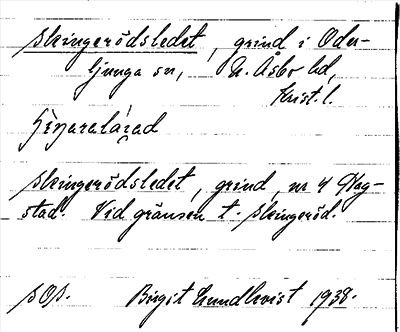 Skingerödsledet, grind i Oder-
ljunga sn, N. Åsbo hd,
Krist. l.
Skingerödsledet, grind, nr 4 Nag-
stad. Vid gränsen t. Skingeröd.
SOS. Birgit Lundkvist 1938.